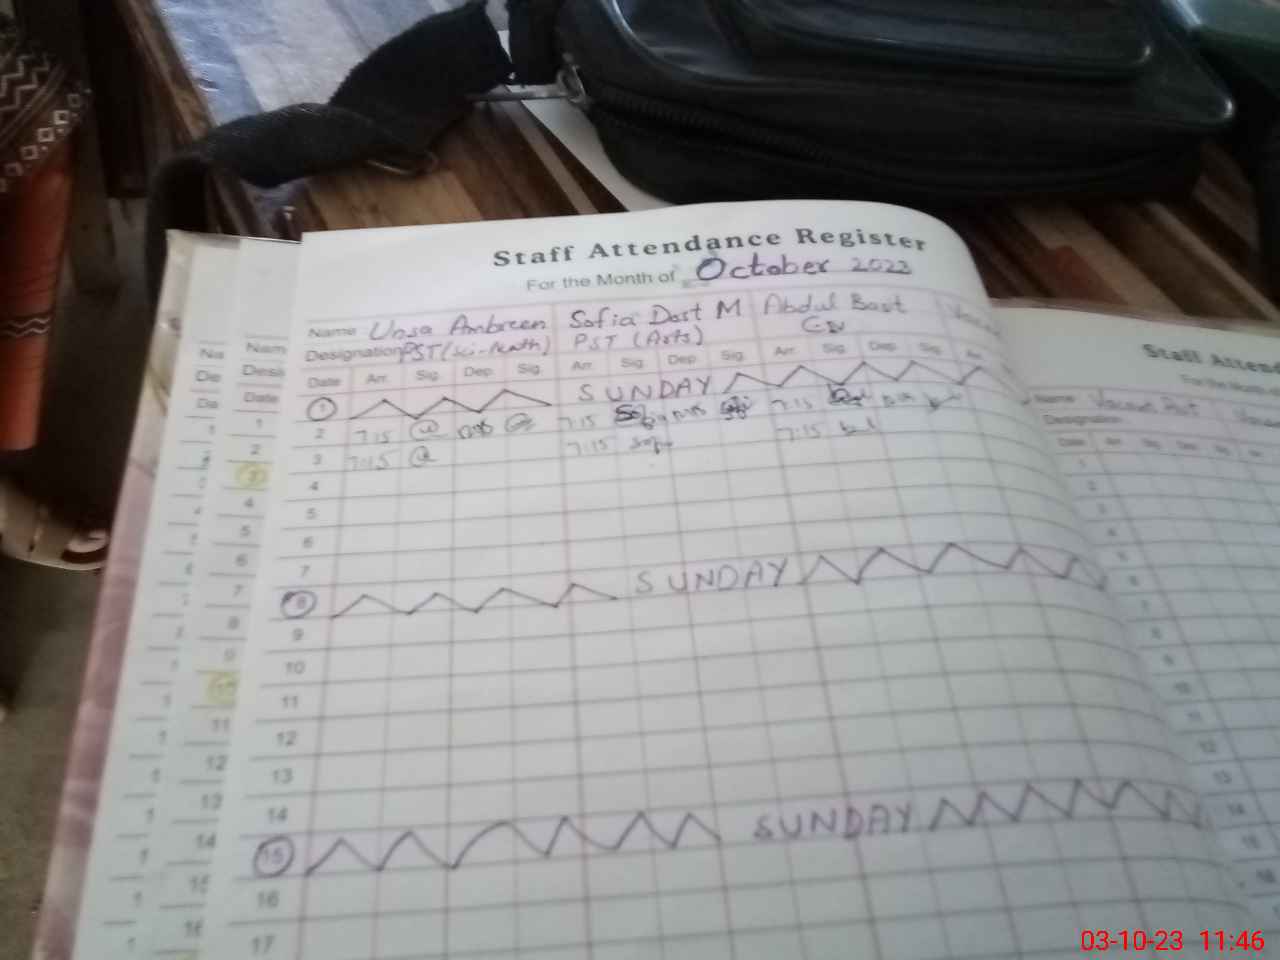 Staff Attendance Register
For the Month of October 2023
Name Unsa Ambreen Sofia Dost M Abdul Basit
Designation PST (Sci-Math) PST (Arts)
Date Arr. Sig. Dep. Sig. Arr. Sig. Dep. Sig. Arr. Sig. Dep. Sig. Arr.
1 SUNDAY
2 7:15 7:15 7:15
3 7:15 7:15 7:15
4
5
6
7
8 SUNDAY
9
10
11
12
13
14
15 SUNDAY
16
17
Nam
Desi
Date
1
2
3
4
5
6
7
8
9
10
11
12
13
14
15
16
Na
De
Da
Staff Attend
Name
Designation
Date
1
2
3
4
5
6
7
8
9
10
11
12
13
14
15
16
03-10-23 11:46